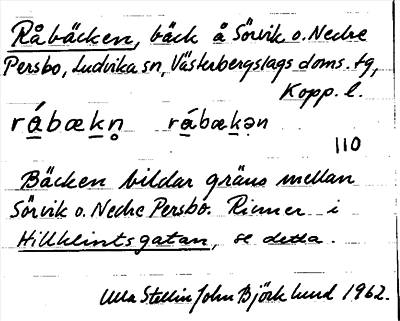 Råbäcken, bäck å Sörvik o. Nedre
Persbo, Ludvika sn, Västerbergslags doms. tg,
Kopp. l.
rábækn̥ rábækən
110
Bäcken bildar gräns mellan
Sörvik o. Nedre Persbo. Rinner i
Hillklintsgatan, se detta.
Ulla Stellin John Björklund 1962.